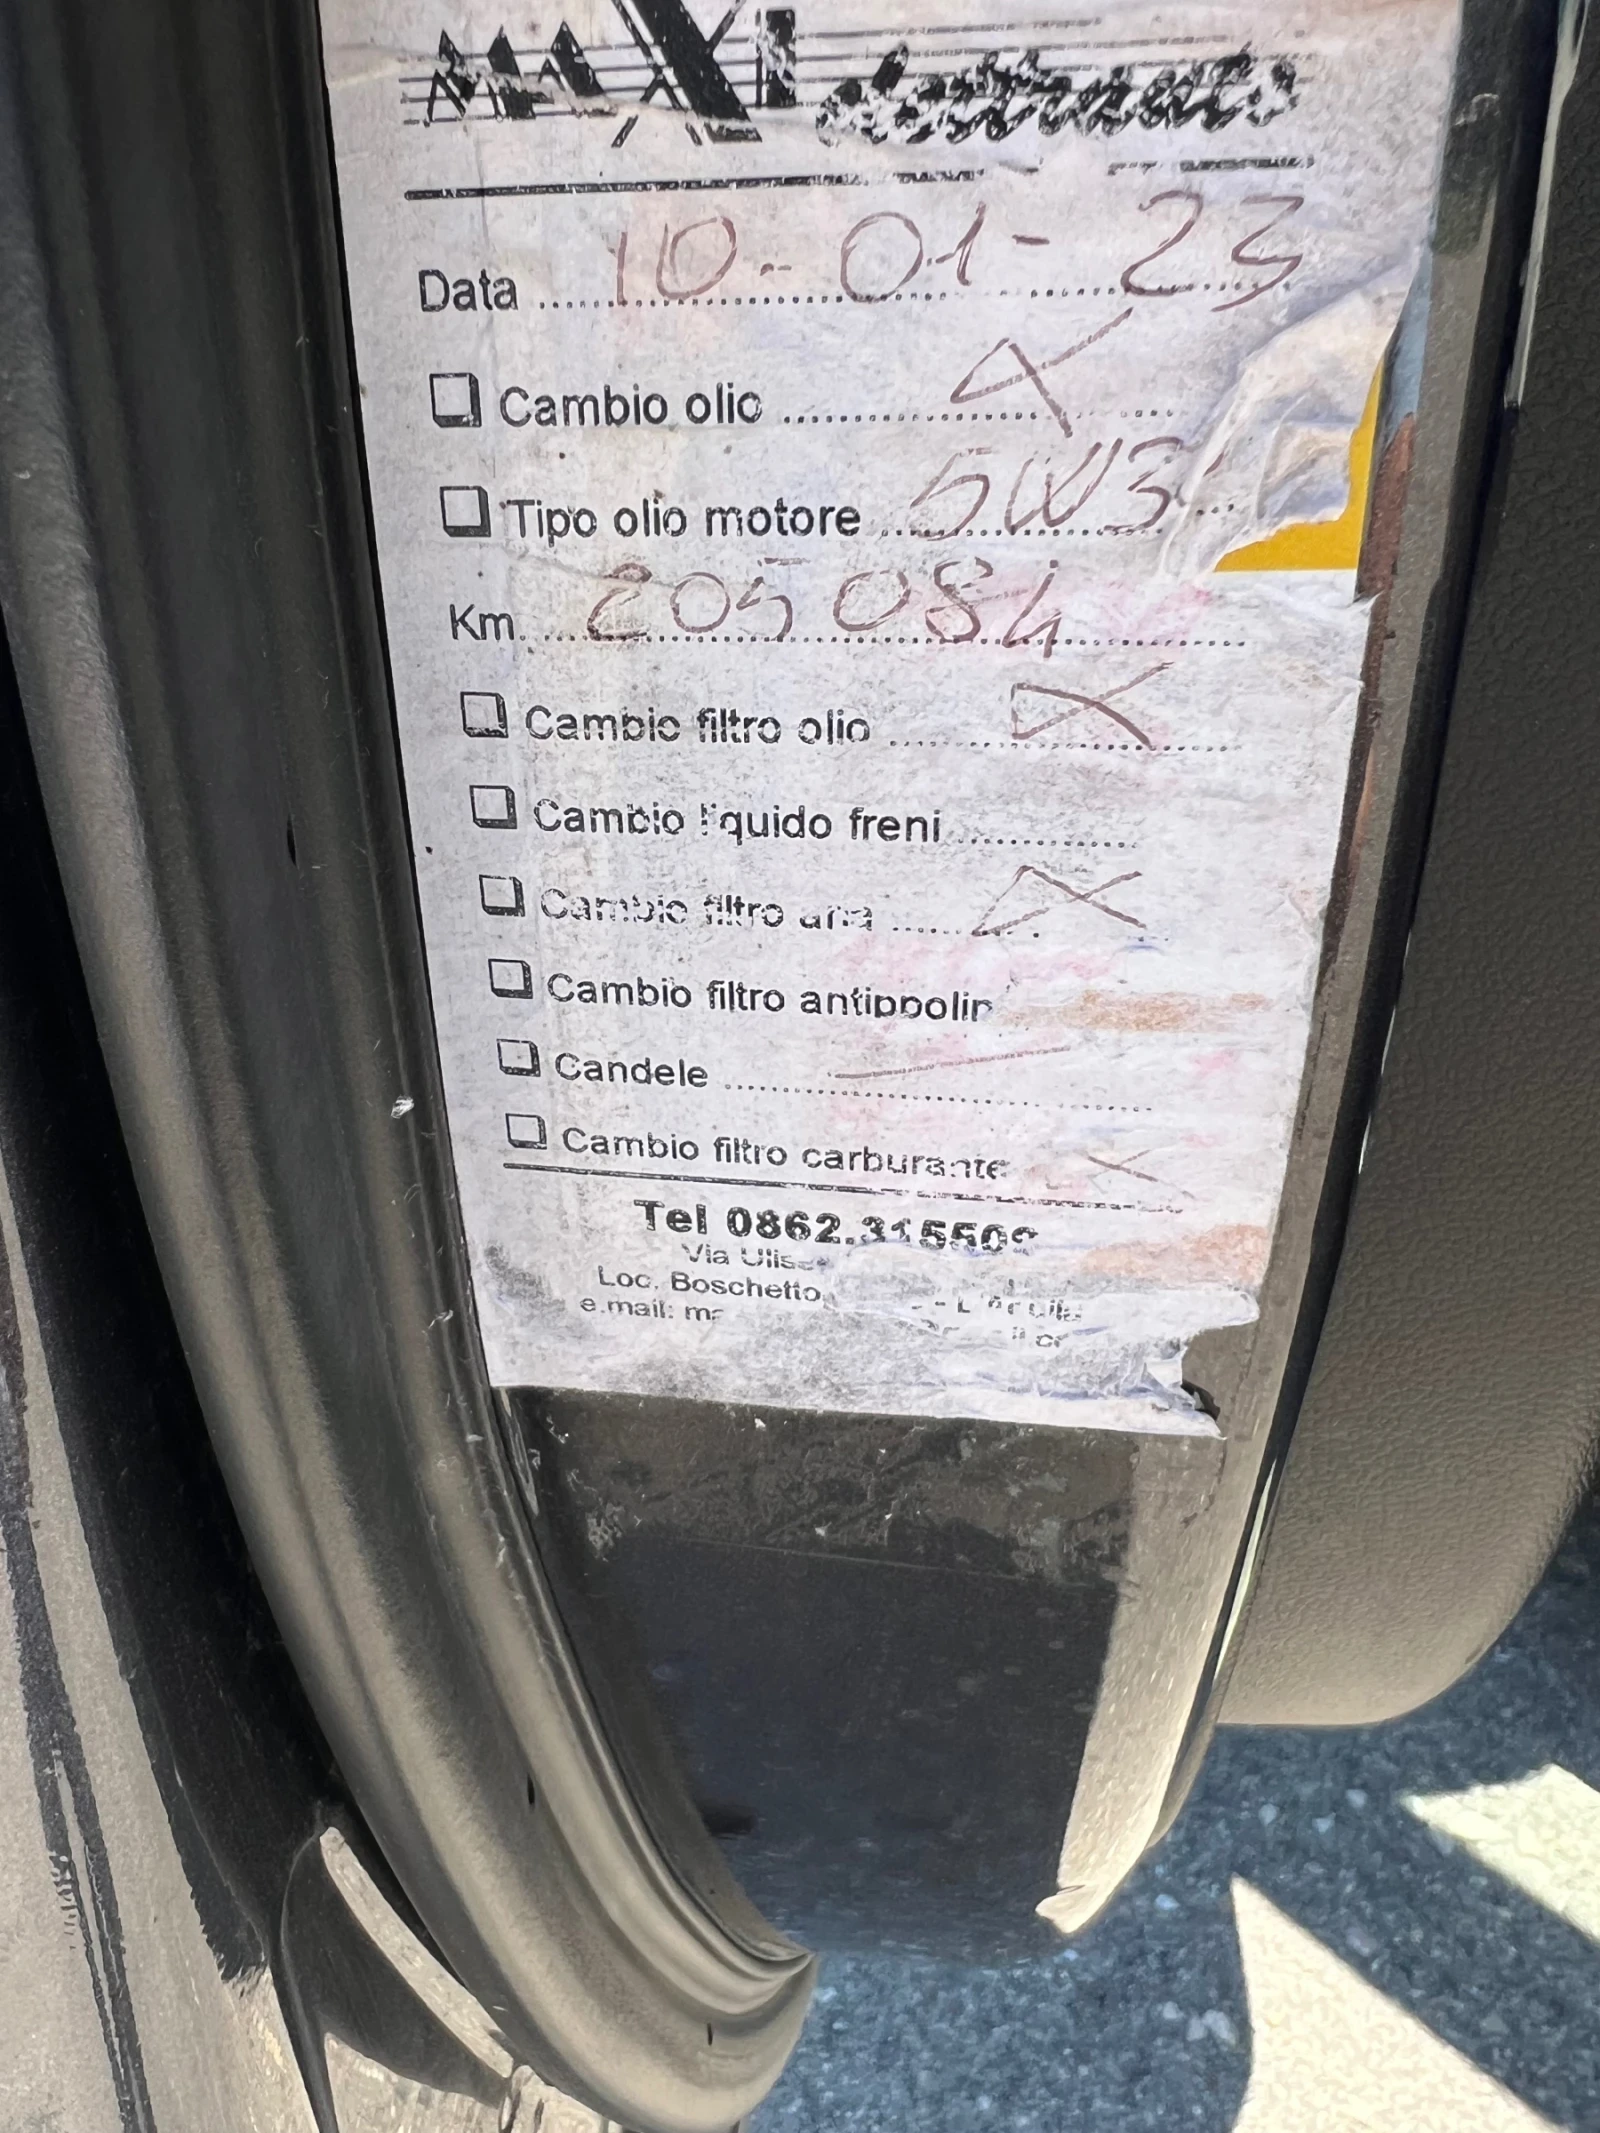 MAXI
Data 10-01-23
Cambio olio X
Tipo olio motore 5W3
Km. 205084
Cambio filtro olio X
Cambio liquido freni
Cambio filtro aria X
Cambio filtro antippolin
Candele —
Cambio filtro carburante X
Tel 0862.315508
Via Ulisse
Loc. Boschetto, - L'Aquila
e.mail: ma